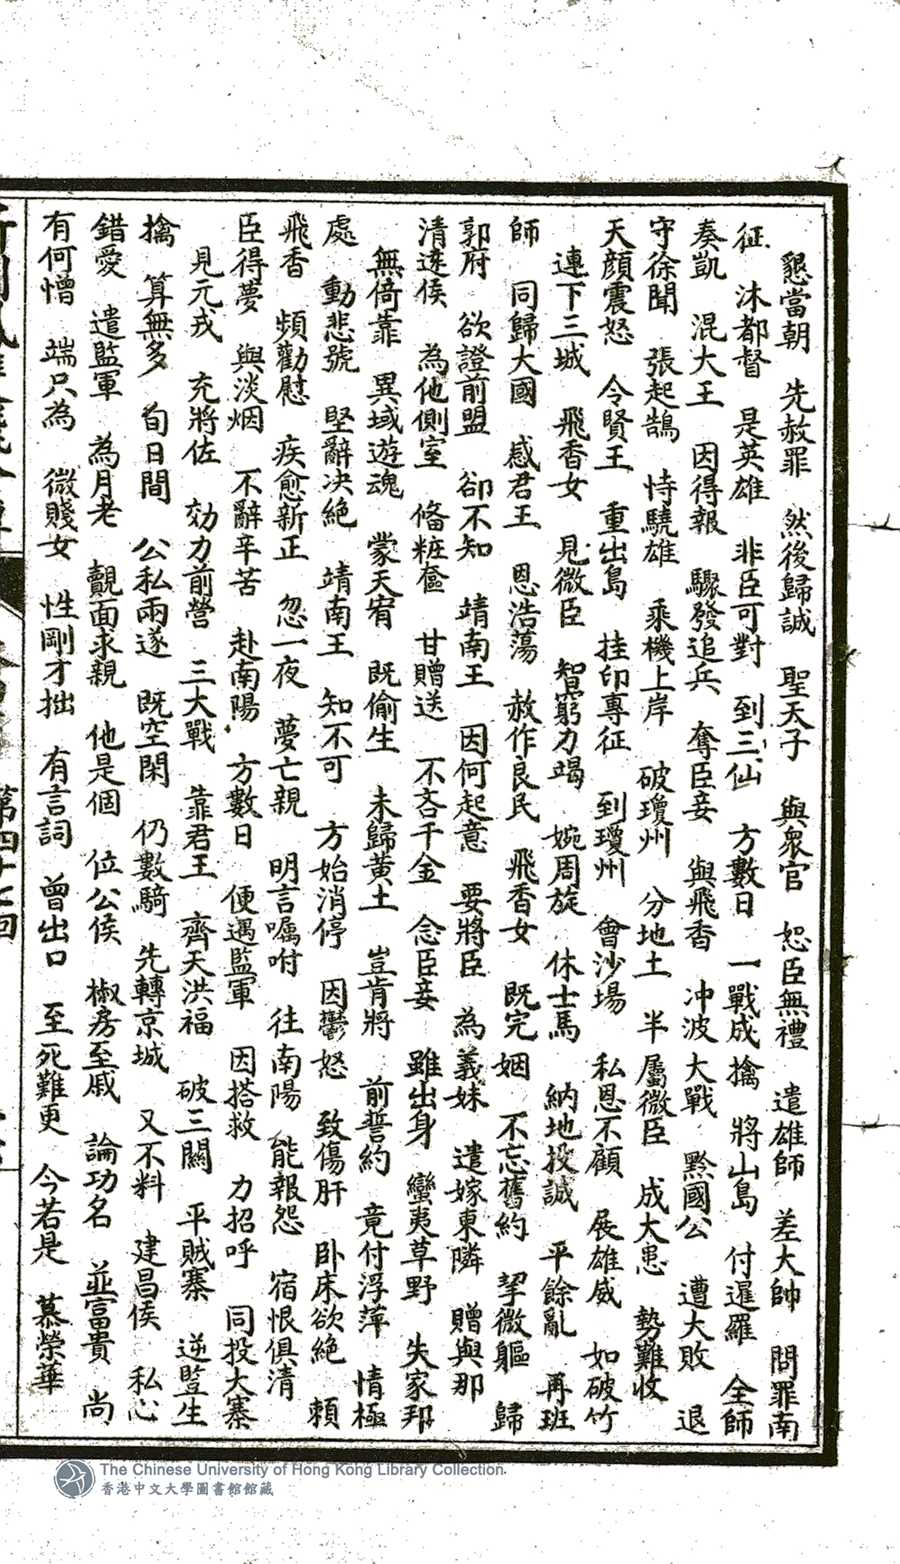 懇當朝　先赦罪　然後歸誠　聖天子　與衆官　恕臣無禮　遣雄師　差大帥　問罪南
征　沐都督　是英雄　非臣可對　到三仙　方數日　一戰成擒　將山島　付暹羅　全師
奏凱　混大王　因得報　驟發追兵　奪臣妾　與飛香　冲波大戰　黔國公　遭大敗　退
守徐聞　張起鵠　恃驍雄　乘機上岸　破瓊州　分地土　半屬微臣　成大患　勢難收
天顔震怒　令賢王　重出島　挂印專征　到瓊州　會沙場　私恩不顧　展雄威　如破竹
連下三城　飛香女　見微臣　智窮力竭　婉周旋　休士馬　納地投誠　平餘亂　再班
師　同歸大國　感君王　恩浩蕩　赦作良民　飛香女　既完姻　不忘舊約　挈微軀　歸
郭府　欲證前盟　卻不知　靖南王　因何起意　要將臣　為義妹　遣嫁東隣　贈與那
清遠侯　為他側室　俻粧奩　甘贈送　不吝千金　念臣妾　雖出身　蠻夷草野　失家邦
無倚靠　異域遊魂　蒙天宥　既偷生　未歸黄土　豈肯將　前誓約　竟付浮萍　情極
處　動悲號　堅辭决絶　靖南王　知不可　方始消停　因鬱怒　致傷肝　卧床欲絶　賴
飛香　頻勸慰　疾愈新正　忽一夜　夢亡親　明言囑咐　往南陽　能報怨　宿恨俱清
臣得夢　與淡烟　不辭辛苦　赴南陽　方數日　便遇監軍　因搭救　力招呼　同投大寨
見元戎　充將佐　効力前營　三大戰　靠君王　齊天洪福　破三關　平賊寨　逆監生
擒　算無多　旬日間　公私兩遂　既空閑　仍數騎　先轉京城　又不料　建昌侯　私心
錯愛　遣監軍　為月老　覿面求親　他是個　位公侯　椒房至戚　論功名　並富貴　尚
有何憎　端只為　微賤女　性剛才拙　有言詞　曾出口　至死難更　今若是　慕榮華
第四十七回
The Chinese University of Hong Kong Library Collection
香港中文大學圖書館館藏